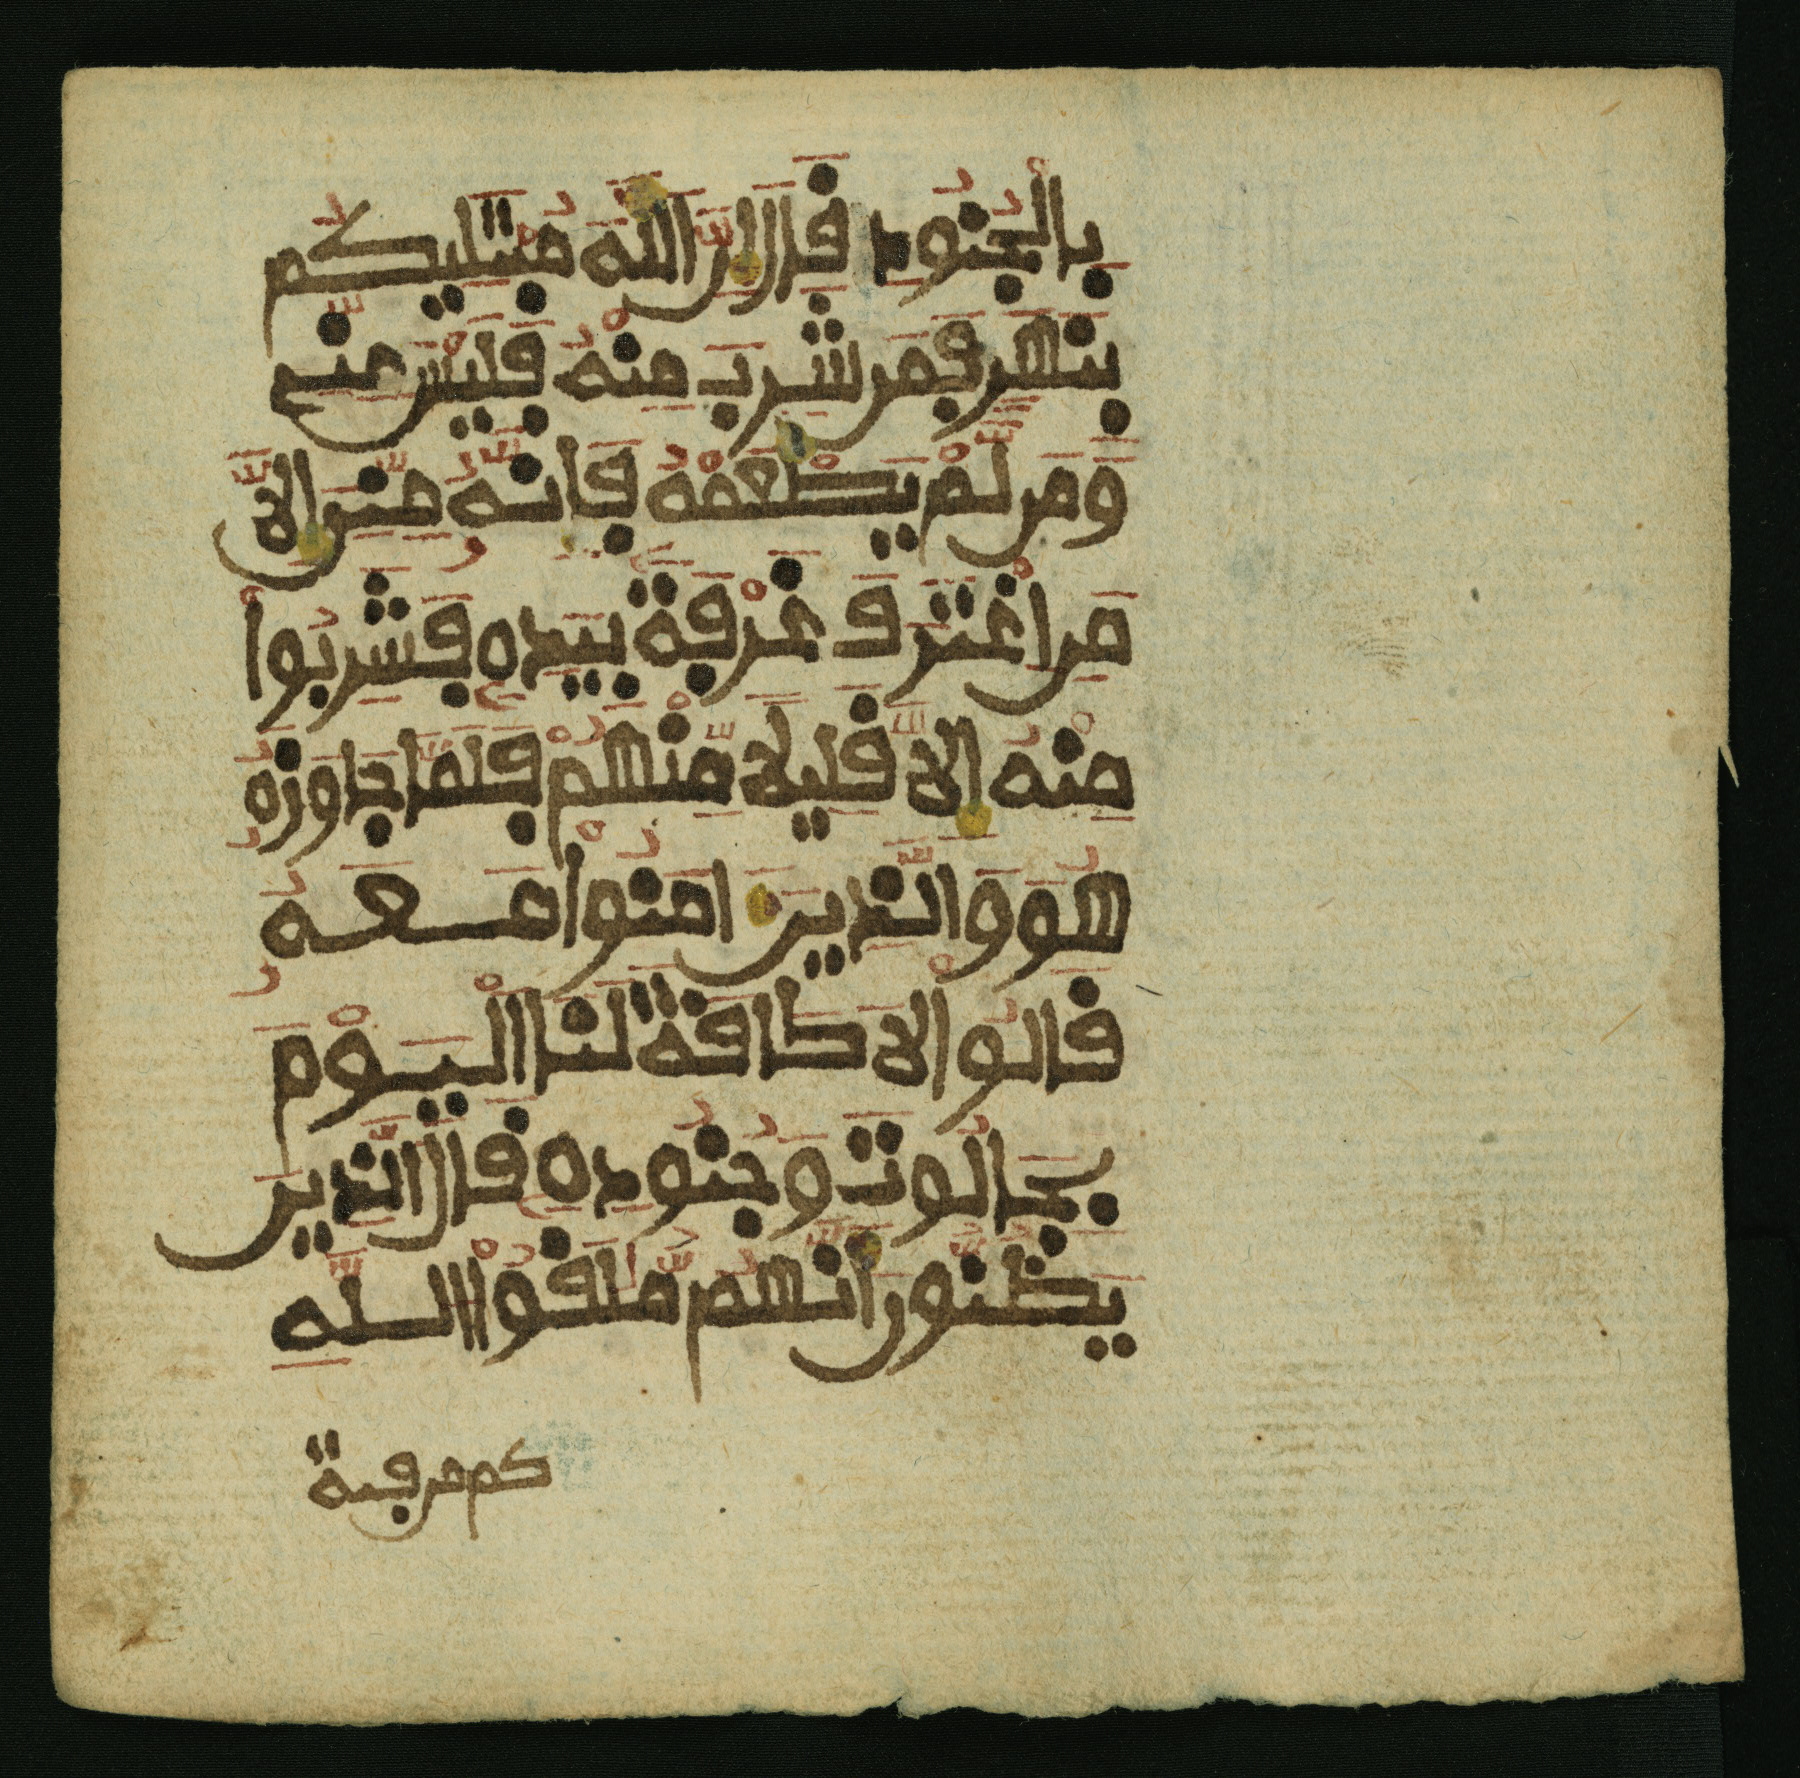 بِالْجُنُودِ قَالَ إِنَّ اللَّهَ مُبْتَلِيكُم
بِنَهَرٍ فَمَن شَرِبَ مِنْهُ فَلَيْسَ مِنِّي
وَمَن لَّمْ يَطْعَمْهُ فَإِنَّهُ مِنِّيَ إِلَّا
مَنِ اغْتَرَفَ غَرْفَةً بِيَدِهِ فَشَرِبُوا
مِنْهُ إِلَّا قَلِيلًا مِّنْهُمْ فَلَمَّا جَاوَزَهُ
هُوَ وَالَّذِينَ ءامَنُوا مَعَهُ
قَالُوا لَا طَاقَةَ لَنَا الْيَوْمَ
بِجَالُوتَ وَجُنُودِهِ قَالَ الَّذِينَ
يَظُنُّونَ أَنَّهُم مُّلَقُوا اللَّهِ
كم من فية